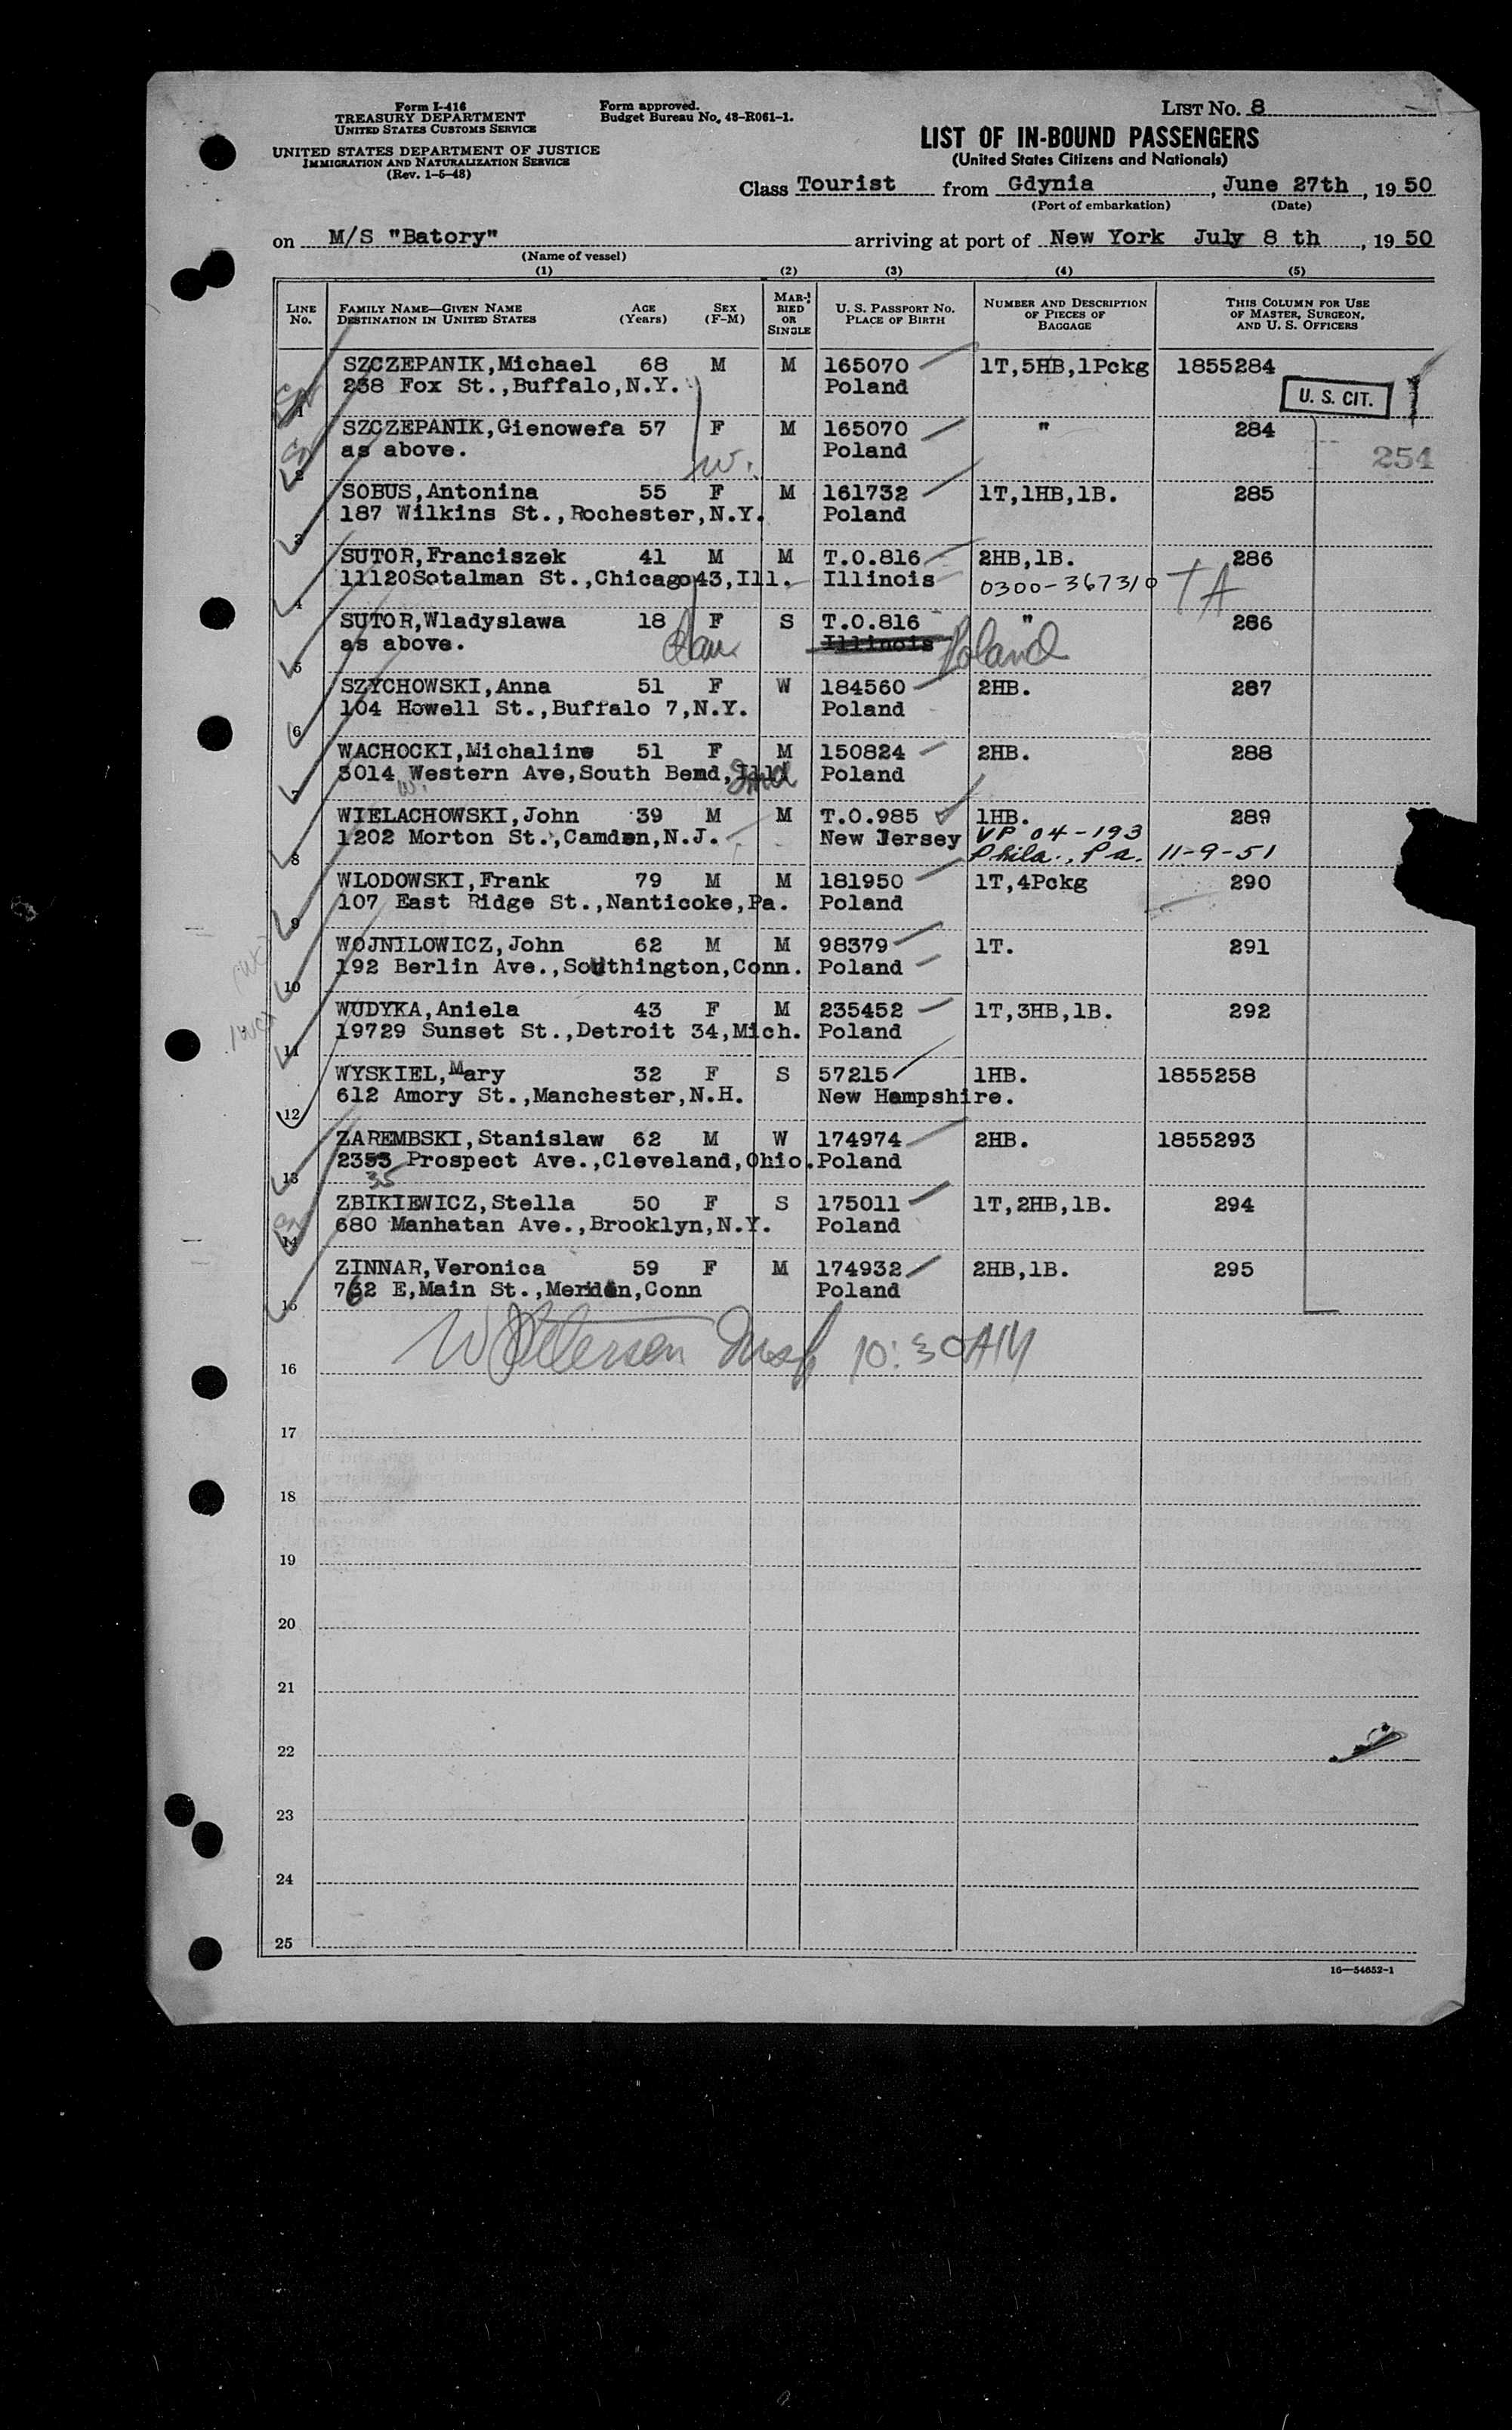 Form I-416
TREASURY DEPARTMENT
UNITED STATES CUSTOMS SERVICE
UNITED STATES DEPARTMENT OF JUSTICE
IMMIGRATION AND NATURALIZATION SERVICE
(Rev. 1-5-48)
Form approved.
Budget Bureau No. 48-R061-1.
LIST NO. 8
LIST OF IN-BOUND PASSENGERS
(United States Citizens and Nationals)
Class Tourist from Gdynia, June 27th, 1950
(Port of embarkation) (Date)
on M/S "Batory" arriving at port of New York July 8 th, 1950
(Name of vessel)
(1) (2) (3) (4) (5)
LINE NO. FAMILY NAME—GIVEN NAME DESTINATION IN UNITED STATES AGE (Years) SEX (F-M) MARRIED OR SINGLE U. S. PASSPORT NO. PLACE OF BIRTH NUMBER AND DESCRIPTION OF PIECES OF BAGGAGE THIS COLUMN FOR USE OF MASTER, SURGEON, AND U. S. OFFICERS
SZCZEPANIK,Michael 68 M M 165070 1T,5HB,1Pckg 1855284
1 238 Fox St.,Buffalo,N.Y. Poland U. S. CIT.
SZCZEPANIK,Gienowefa 57 F M 165070 " 284
2 as above. W. Poland 254
SOBUS,Antonina 55 F M 161732 1T,1HB,1B. 285
3 187 Wilkins St.,Rochester,N.Y. Poland
SUTOR,Franciszek 41 M M T.O.816 2HB,1B. 286
4 11120Sotalman St.,Chicago43,Ill. Illinois 0300-367310 TA
SUTOR,Wladyslawa 18 F S T.O.816 " 286
5 as above. Dau Illinois Poland
SZYCHOWSKI,Anna 51 F W 184560 2HB. 287
6 104 Howell St.,Buffalo 7,N.Y. Poland
WACHOCKI,Michaline 51 F M 150824 2HB. 288
7 3014 W. Western Ave,South Bend, Ind Poland
WIELACHOWSKI,John 39 M M T.O.985 1HB. 289
8 1202 Morton St.,Camden,N.J. New Jersey VP 04-193
Phila., Pa. 11-9-51
WLODOWSKI,Frank 79 M M 181950 1T,4Pckg 290
9 107 East Ridge St.,Nanticoke,Pa. Poland
WOJNILOWICZ,John 62 M M 98379 1T. 291
10 192 Berlin Ave.,Southington,Conn. Poland
WUDYKA,Aniela 43 F M 235452 1T,3HB,1B. 292
11 19729 Sunset St.,Detroit 34,Mich. Poland
WYSKIEL,Mary 32 F S 57215 1HB. 1855258
12 612 Amory St.,Manchester,N.H. New Hampshire.
ZAREMBSKI,Stanislaw 62 M W 174974 2HB. 1855293
13 2353 Prospect Ave.,Cleveland,Ohio. Poland
35
ZBIKIEWICZ,Stella 50 F S 175011 1T,2HB,1B. 294
14 680 Manhatan Ave.,Brooklyn,N.Y. Poland
ZINNAR,Veronica 59 F M 174932 2HB,1B. 295
15 762 E,Main St.,Meriden,Conn Poland
Insp 10:30AM
16
17
18
19
20
21
22
23
24
25
16—54652-1